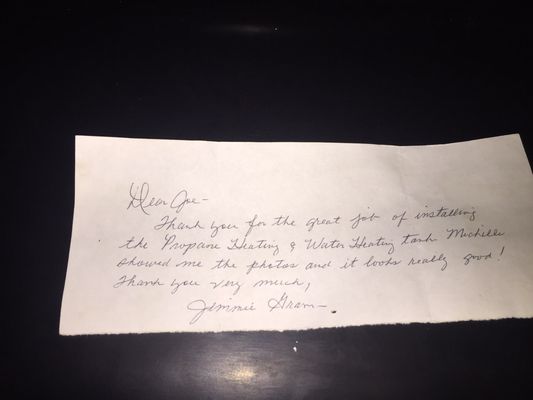 Dear Joe-
Thank you for the great job of installing
the Propane Heating & Water Heating tank Michelle
showed me the photos and it looks really good!
Thank you very much,
Jimmie